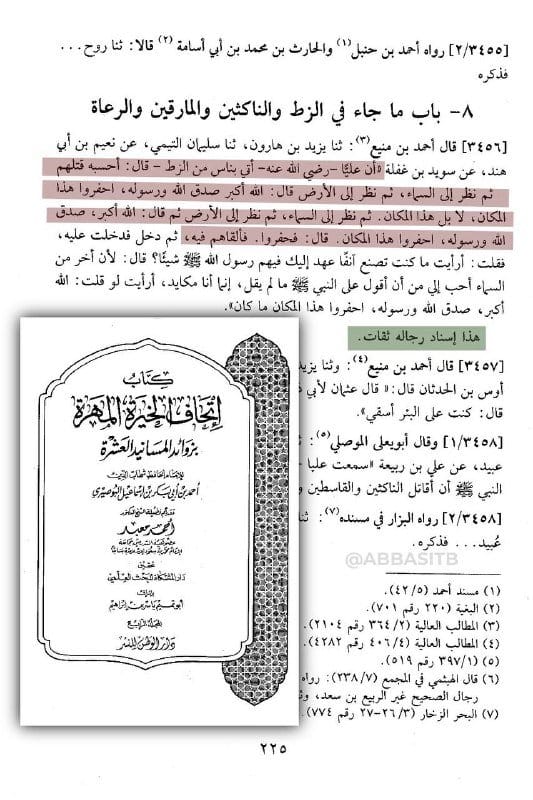 [٢/٣٤٥٥] رواه أحمد بن حنبل(١) والحارث بن محمد بن أبي أسامة (٢) قالا: ثنا روح...
فذكره
٨- باب ما جاء في الزط والناكثين والمارقين والرعاة
[٣٤٥٦] قال أحمد بن منيع(٣): ثنا يزيد بن هارون، ثنا سليمان التيمي، عن نعيم بن أبي
هند، عن سويد بن غفلة «أن عليًّا -رضي الله عنه- أتي بناس من الزط - قال: أحسبه قتلهم
ثم نظر إلى السماء، ثم نظر إلى الأرض قال: الله أكبر صدق الله ورسوله، احفروا هذا
المكان، لا بل هذا المكان. ثم نظر إلى السماء، ثم نظر إلى الأرض ثم قال: الله أكبر، صدق
الله ورسوله، احفروا هذا المكان. قال: فحفروا. فألقاهم فيه، ثم دخل فدخلت عليه،
فقلت: أرأيت ما كنت تصنع آنفًا عهد إليك فيهم رسول الله ﷺ شيئًا؟ قال: لأن أخر من
السماء أحب إلي من أن أقول على النبي ﷺ ما لم يقل، إنما أنا مكايد، أرأيت لو قلت: الله
أكبر، صدق الله ورسوله، احفروا هذا المكان ما كان».
هذا إسناد رجاله ثقات.
[٣٤٥٧] قال أحمد بن منيع(٤): وثنا يزيد
أوس بن الحدثان قال: «قال عثمان لأبي
قال: كنت على البئر أسقي».
[١/٣٤٥٨] وقال أبويعلى الموصلي(٥):
عبيد، عن علي بن ربيعة «سمعت عليا
النبي ﷺ أن أقاتل الناكثين والقاسطين و
[٢/٣٤٥٨] رواه البزار في مسنده(٧): ثنا
عُبيد... فذكره.
@ABBASITB
(١) مسند أحمد (٤٢/٥).
(٢) البغية (٢٢٠ رقم ٧٠١).
(٣) المطالب العالية (٣٦٤/٢ رقم ٢١٠٤).
(٤) المطالب العالية (٤٠٦/٤ رقم ٤٢٨٢).
(٥) (٣٩٧/١ رقم ٥١٩).
(٦) قال الهيثمي في المجمع (٢٣٨/٧): رواه
رجال الصحيح غير الربيع بن سعد، وث
(٧) البحر الزخار (٢٦/٣-٢٧ رقم ٧٧٤).
٢٢٥
كتاب
إتحاف الخيرة المهرة
بزوائد المسانيد العشرة
للإمام الحافظ شهاب الدين
أحمد بن أبي بكر بن إسماعيل البوصيري
أحمد معبد
تحقيق
دار المشكاة للبحث العلمي
بإشراف
أبو تميم ياسر بن إبراهيم
المجلد الرابع
دار الوطن للنشر